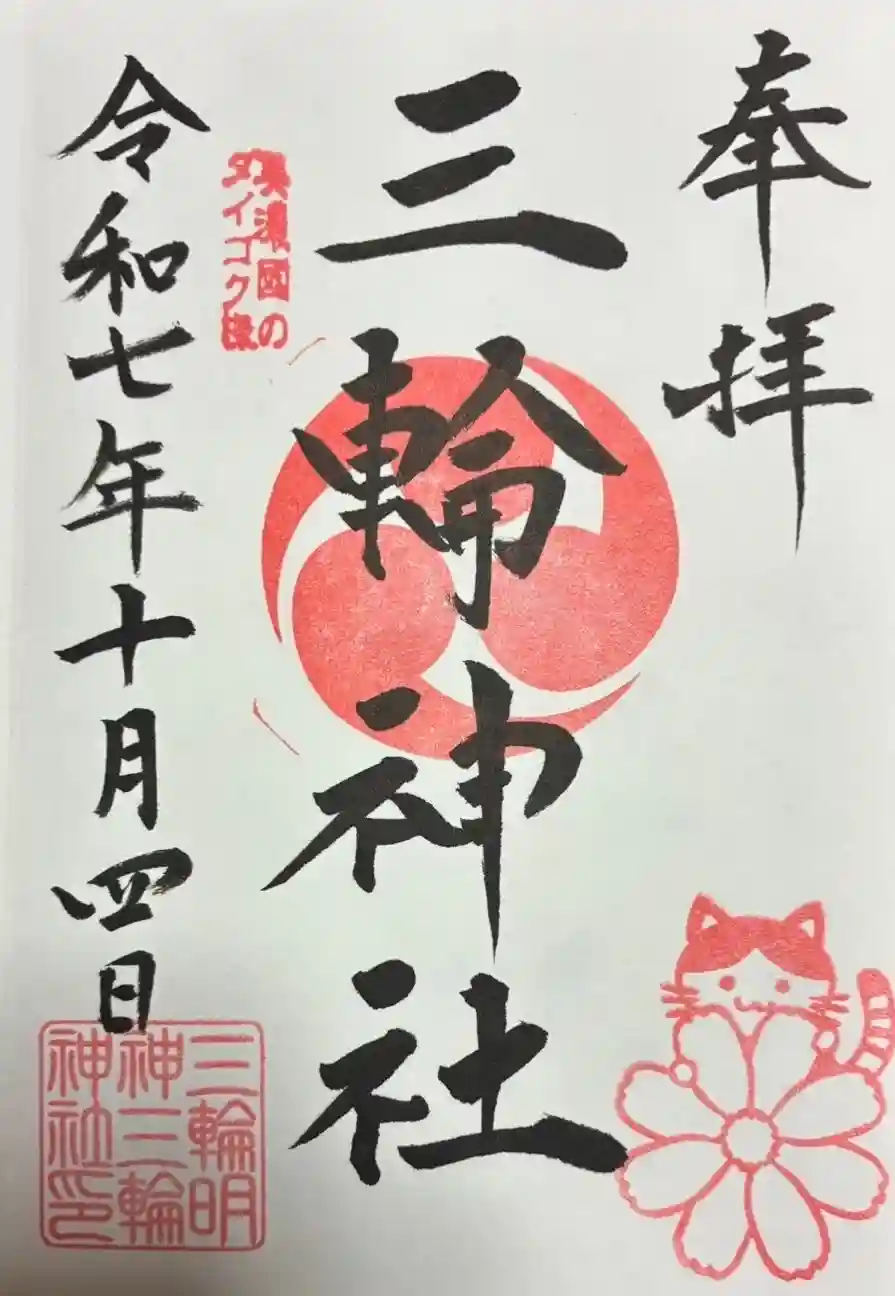 奉拝
三輪神社
美濃國の
ダイコク様
令和七年十月四日
三輪明
神三輪
神社印